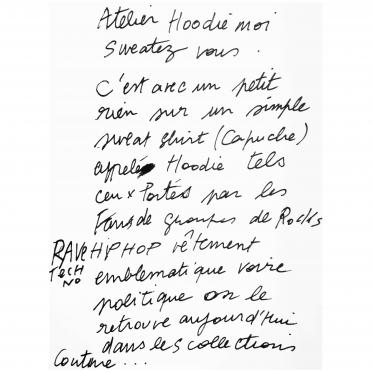 Atelier Hoodie moi
Sweatez vous.
C'est avec un petit
rien sur un simple
sweat shirt (Capuche)
appelés Hoodie tels
ceux Portés par les
Fans de groupes de Rocks
RAVE HIP HOP vêtement
TECH
NO
emblematique voire
politique on le
retrouve aujourd'hui
dans les collections
Couture...